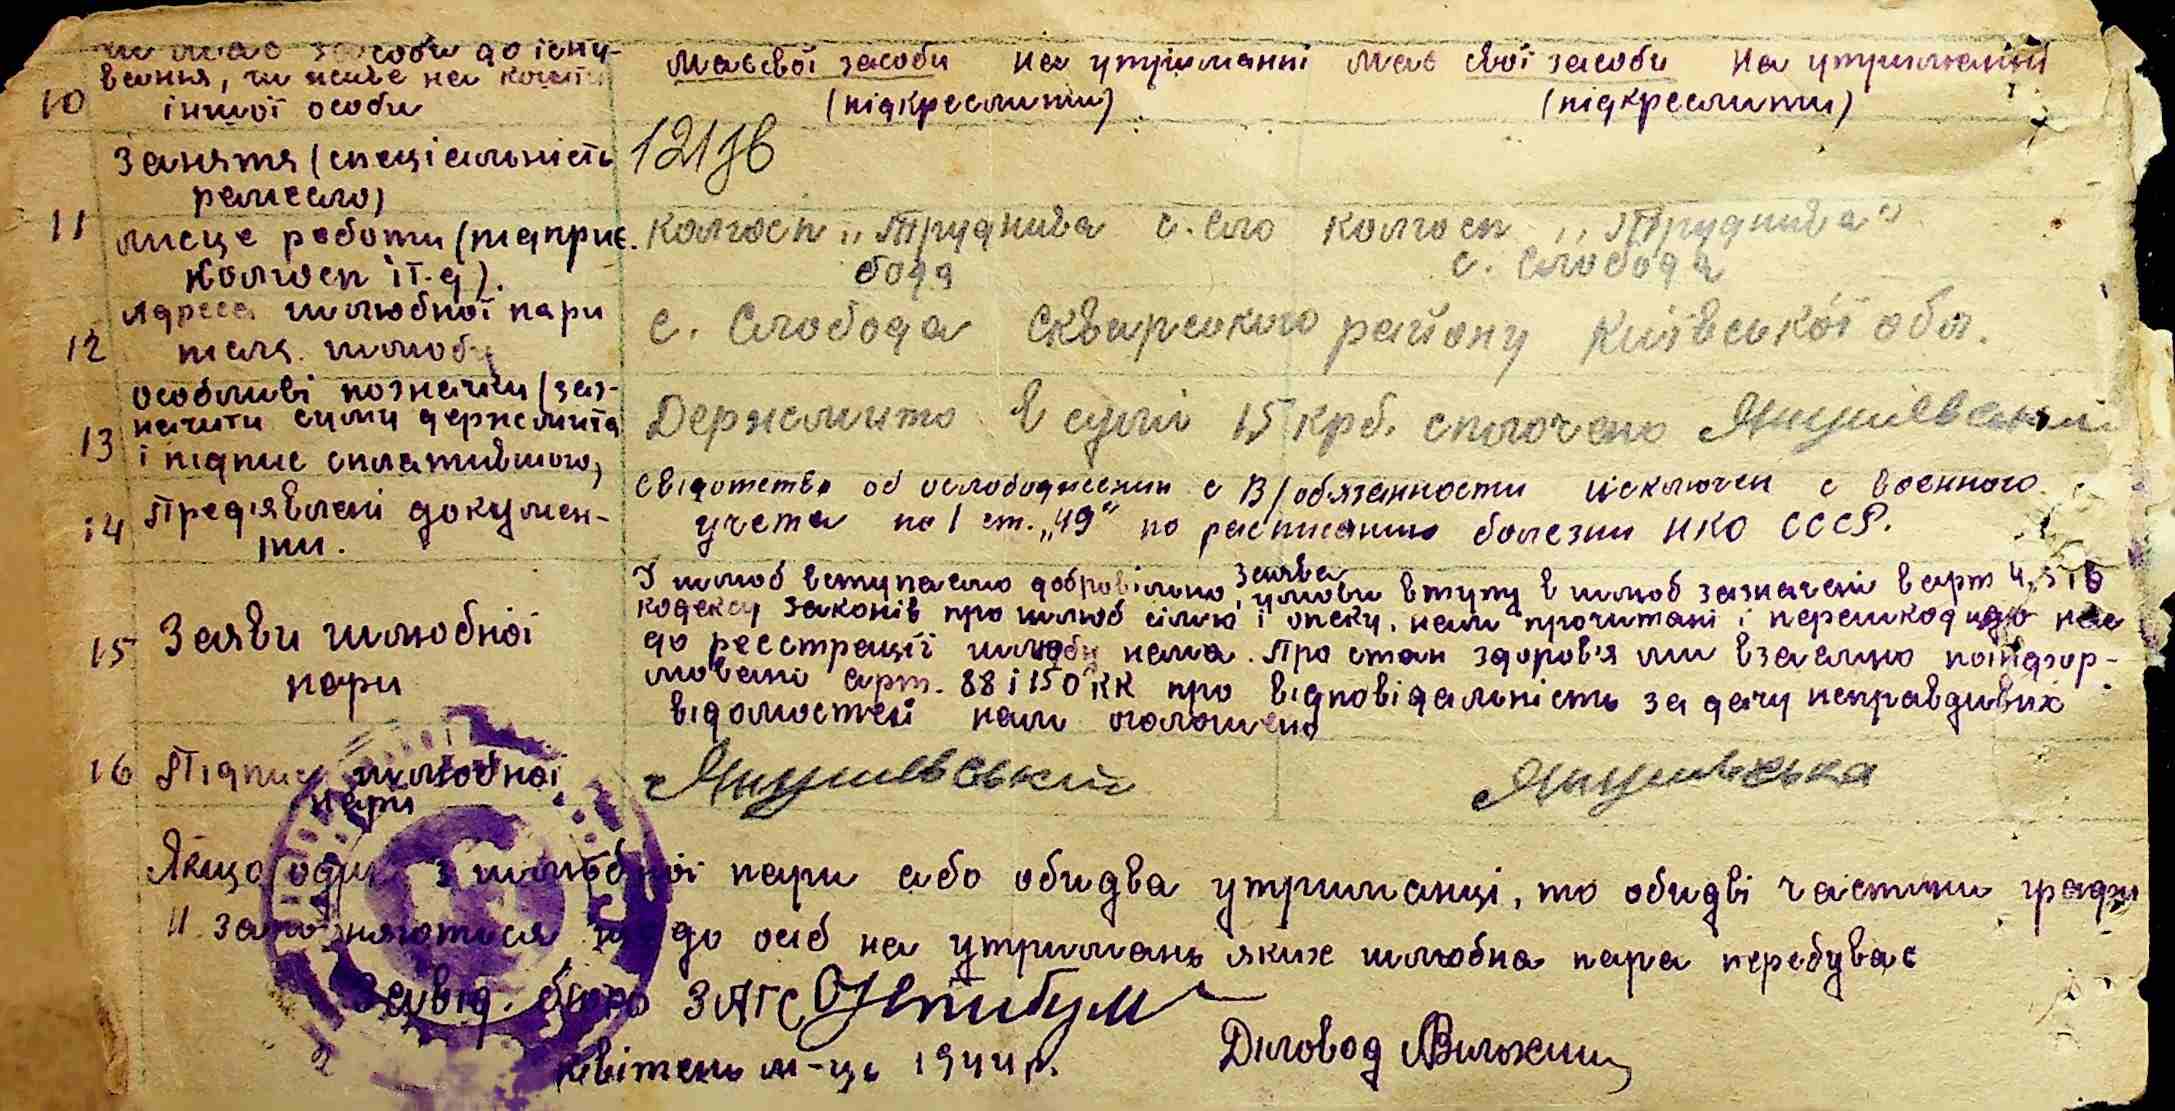 чи має засоби до існу-
вання, чи живе на кошти
10 іншої особи
має свої засоби на утриманні має свої засоби на утриманні
(підкреслити) (підкреслити)
Заняття (спеціальність
ремесло)
11 місце роботи (підприє.
Колгосп і т. д).
колгосп „Трудника с. Сло
бода
колгосп „Трудника"
с. Слобода
Адреса шлюбної пари
12 після шлюбу
с. Слобода Сквирського району Київської обл.
особливі позначки (заз-
13 начити суму держмита
і підпис сплатившого)
Держмито в сумі 15 крб. сплочено Янушевський
14 Пред'явлені докумен-
ти.
свідотство об ослобождении с В/обязанности исключен с военного
учета по 1 ст. „49" по расписанию болезни НКО СССР.
15 Заяви шлюбної
пари
У шлюб вступаємо добровільно, заява умови вступу в шлюб зазначені в арт 4, 5 і 6
кодексу законів про шлюб сімю і опеку, нам прочитані і перешкод що
до реєстрації шлюбу нема. Про стан здоров'я ми взаємно поінфор-
мовані арт. 88 і 150 КК про відповідальність за дачу неправдивих
відомостей нам оголошено
16 Підпис шлюбної
пари
Янушевський Янушевська
Якщо один з шлюбної пари або обидва утриманці, то обидві частини графи
11 заповняються до осіб на утримань яких шлюбна пара перебуває
Завід. бюро ЗАГС
квітень м-ць 1944 р.
Діловод